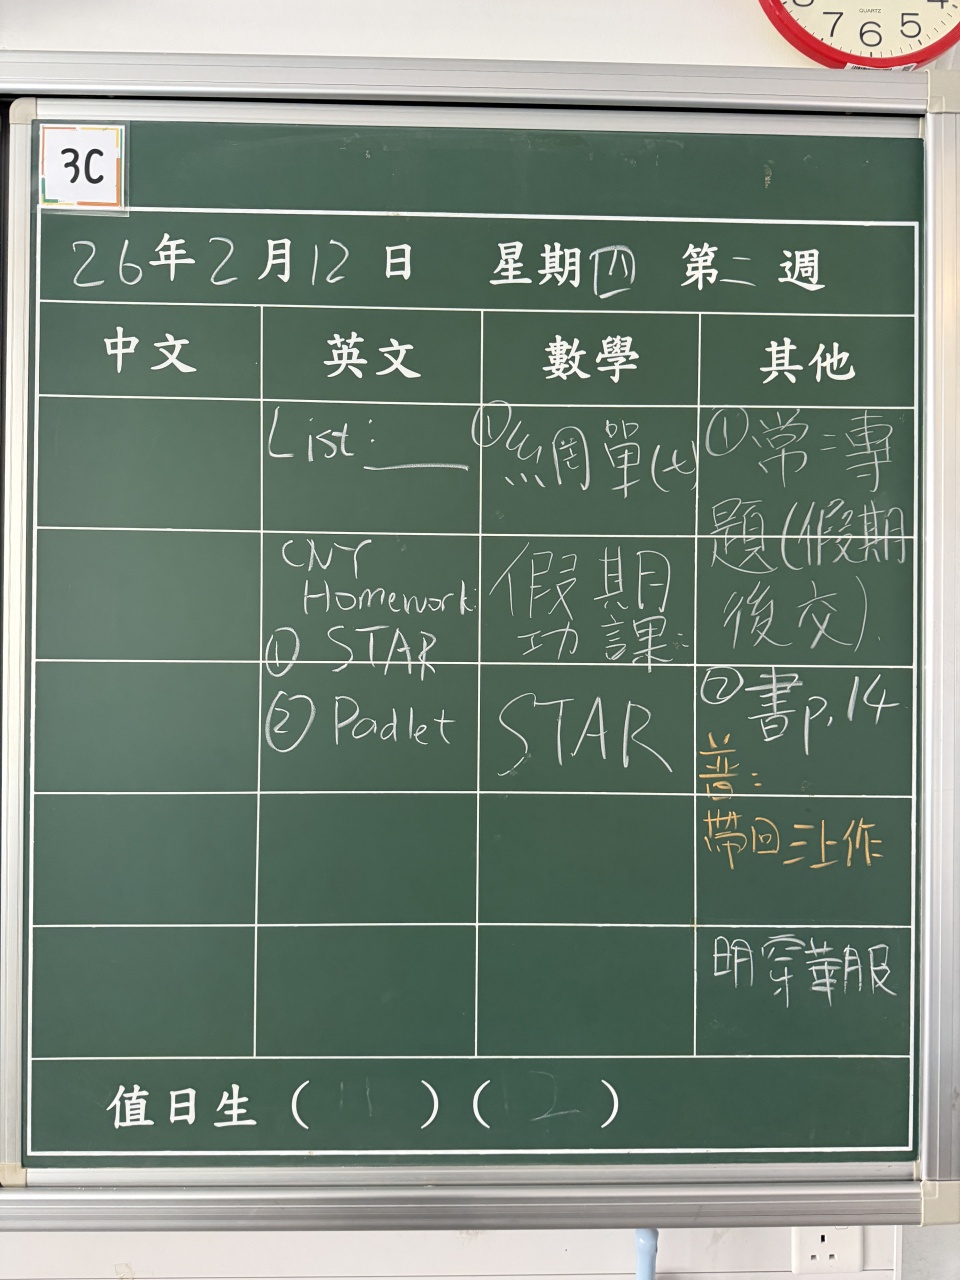 QUARTZ
7 6 5
3C
26年2月12日 星期四 第二週
中文 英文 數學 其他
List: ____
CNY
Homework:
① STAR
② Padlet
① 網單(七)
假期
功課:
STAR
① 常:專
題(假期
後交).
② 書p.14
普:
帶回三上作
明穿華服
值日生 ( 11 ) ( 12 )